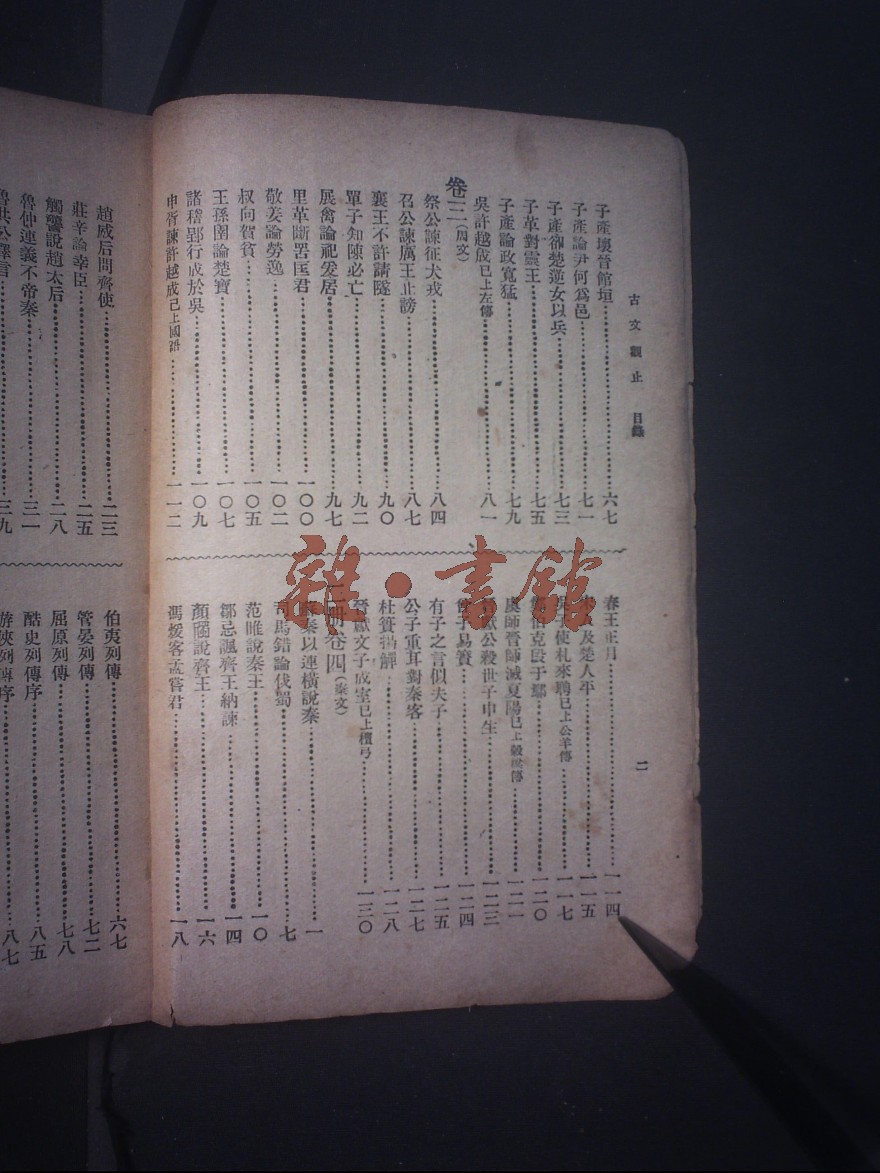 古文觀止 目錄
二
子產壞晉館垣 六七
子產論尹何爲邑 七一
子產卻楚逆女以兵 七三
子革對靈王 七五
子產論政寬猛 七九
吳許越成已上左傳 八一
卷三(周文)
祭公諫征犬戎 八四
召公諫厲王止謗 八七
襄王不許請隧 九〇
單子知陳必亡 九二
展禽論祀爰居 九七
里革斷罟匡君 一〇〇
敬姜論勞逸 一〇二
叔向賀貧 一〇五
王孫圉論楚寶 一〇七
諸稽郢行成於吳 一〇九
申胥諫許越成已上國語 一一二
春王正月 一一四
及楚人平 一一五
吳子使札來聘已上公羊傳 一一七
鄭伯克段于鄢 一二〇
虞師晉師滅夏陽已上穀梁傳 一二一
獻公殺世子申生 一二三
曾子易簀 一二四
有子之言似夫子 一二五
公子重耳對秦客 一二七
杜蕢揚觶 一二八
晉獻文子成室已上檀弓 一三〇
卷四(秦文)
蘇秦以連橫說秦 一
司馬錯論伐蜀 七
范睢說秦王 一〇
鄒忌諷齊王納諫 一四
顏斶說齊王 一六
馮煖客孟嘗君 一八
趙威后問齊使 二三
莊辛論幸臣 二五
觸讋說趙太后 二八
魯仲連義不帝秦 三一
魯共公擇言 三九
伯夷列傳 六七
管晏列傳 七二
屈原列傳 七八
酷吏列傳序 八五
游俠列傳序 八七
雜·書館